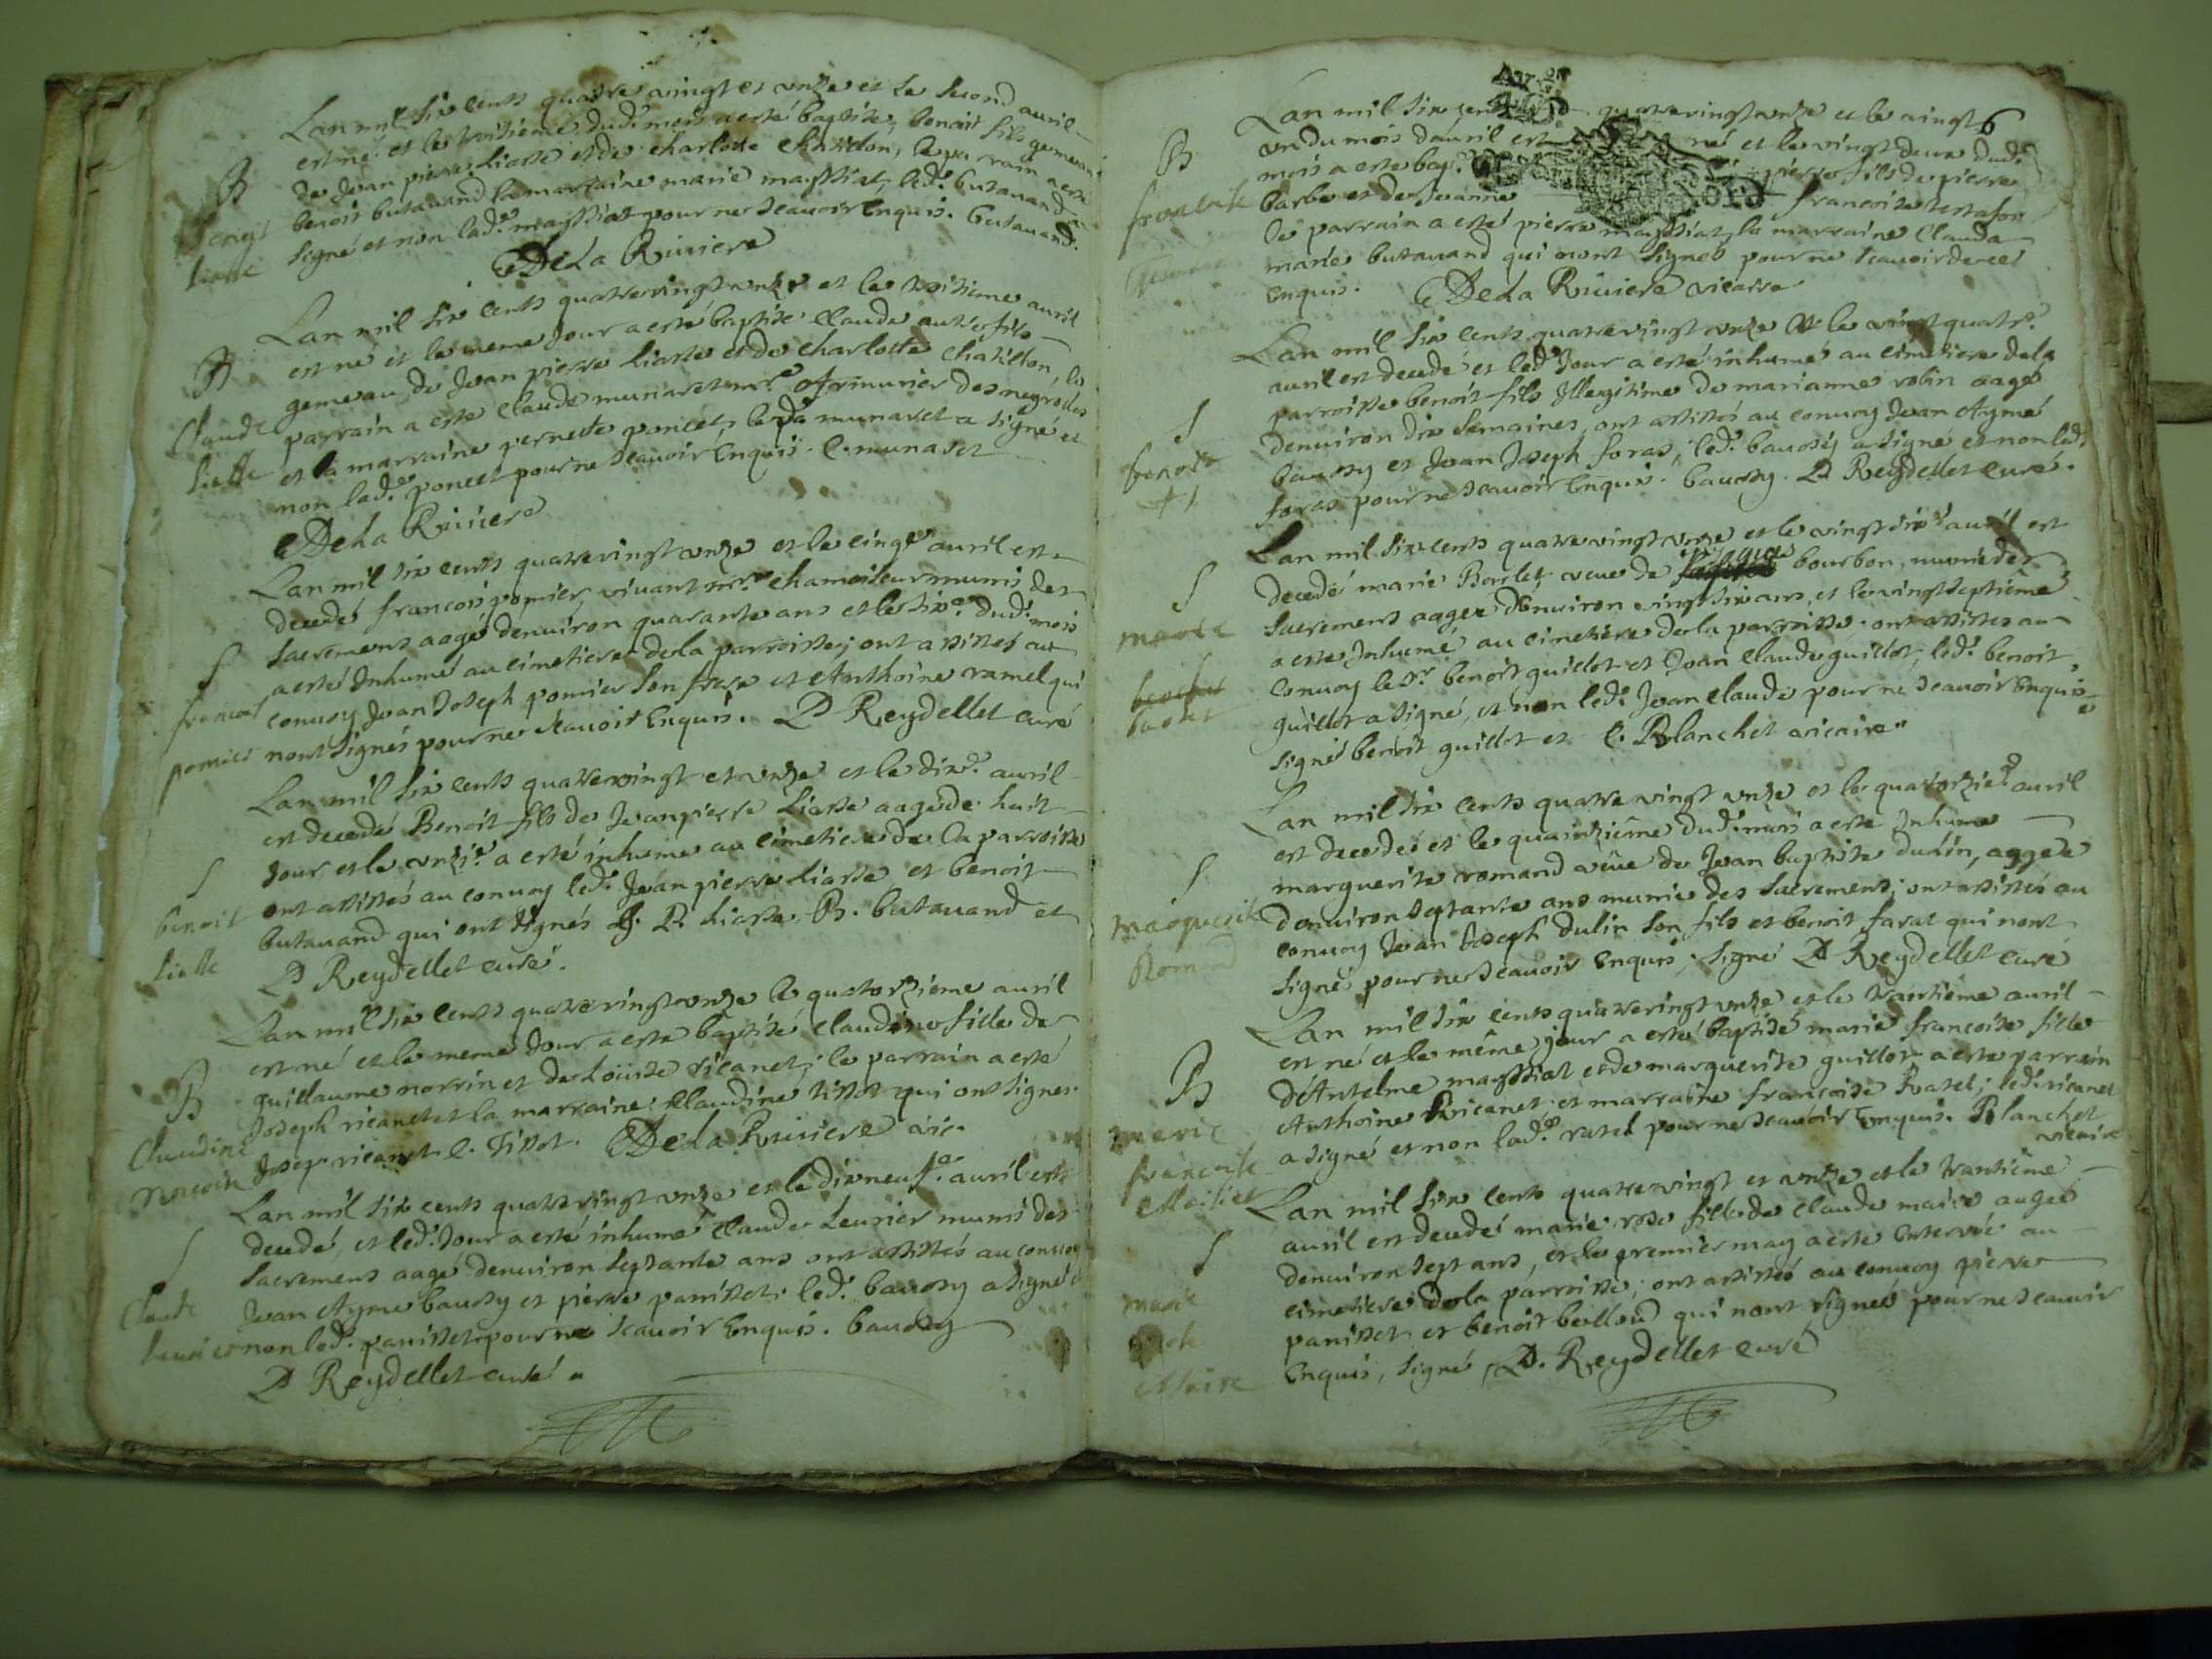 Lan mil six cents quatre vingt et unze et le second auril
est né et le troisieme dud. mois a esté baptisé, benoit fils gemeau
de Jean pierre Liasse et de charlotte Chatillon, le parrain a esté
B
benoit butauand la marraine marie massiat, led. butauand a
benoit
signé et non lad. massiat pour ne scauoir Enquis. butauand.
liasse
DeLa Riuiere
Lan mil six cents quatre vingt unze et le troisieme auril
est né et le meme Jour a esté baptisé Claude autre fils
B
gemeau de Jean pierre Liasse et de charlotte Chatillon, le
Claude
parrain a esté Claude munaret mre Armurier des negrolles
liasse
et la marraine pernette poncet, led. munaret a signé et
non lad. poncet pour ne scauoir Enquis. C. munaret
DeLa Riuiere
Lan mil six cents quatre vingt unze et le cinqe auril est
decedé francois pomier, viuant mre chamoiseur muni des
sacremens aagé denuiron quarante ans et le sixe dud. mois
S
a esté Inhumé au cimetiere de la parroisse, ont assistés au
francois
conuoy Jean Joseph pomier son frere et Anthoine ramel qui
pomier
nont signés pour ne scauoir Enquis. D Reydellet curé
Lan mil six cents quatre vingt et unze et le dixe. auril
est decedé Benoit fils de Jean pierre Liasse aagé de huit
Jour et le unzie. a esté inhume au cimetiere de la parroisse
S
ont assistés au conuoy led. Jean pierre Liasse et benoit
benoit
butauand qui ont signés J. P. Liasse B. butauand et
liasse
D Reydellet curé.
Lan mil six cents quatre vingt unze le quatorzieme auril
est né et le meme Jour a esté baptisé claudine fille de
B
guillaume norrin et de Loüise ricanet, le parrain a esté
Claudine
Joseph ricanet et la marraine Claudine tissot qui ont signes.
norrin
Josep. ricanet C. Tissot. DeLa Riuiere vic.
Lan mil six cents quatre vingt unze et le dixneufe. auril est
decedé, et led. Jour a esté inhumé claude Leurier muni des
S
sacremens aagé denuiron septante ans ont assistés au conuoy
Claude
Jean Ayme baudry et pierre panisset. led. baudry a signé
leurier
et non led. panisset pour ne scauoir Enquis. baudry
D Reydellet curé
6
Lan mil six cent quatre vingt unze et le vingt
B
un du mois dauril est né et le vingt deux dud.
mois a esté bap. pierre fils de pierre
francoise
barbe et de Jeanne francoise testafon
le parrain a esté pierre massiat, la marraine Clauda
marie butauand qui nont signés pour ne scauoir de ce
enquis. DeLa Riuiere vicaire
Lan mil six cents quatre vingt unze et le vingt quatre.
auril est decedé et led. Jour a esté inhumé au cimetiere de la
parroisse benoit fils Illegitime de marianne robin aagé
S
denuiron dix semaines, ont assistés au conuoy Jean Aymé
benoit
baudry et Jean Joseph foras, led. baudry a signé et non led.
foras pour ne scauoir Enquis. baudry. D Reydellet curé.
Lan mil six cents quatre vingt unze et le vingt sixe auril est
S
decedé marie Borlet veue de bourbon, munie des
marie
sacremens aagee denuiron vingt six ans, et le vingt septieme
a esté Inhumé au cimetiere de la parroisse. ont assistes au
conuoy le sr. benoit guillot et Jean Claude guillot, led. benoit,
guillot a signé, et non led. Jean Claude pour ne scauoir Enquis
signé benoit guillot et C. Blanchet vicaire
Lan mil six cents quatre vingt unze et le quatorzie. auril
est decedeé et le quinzième dud. mois a esté Inhumé
S
marguerite romand veüe de Jean baptiste dulin, aagée
marguerite
denuiron septante ans munie des sacremens, ont assistés au
Romand
conuoy Jean Joseph dulin son fils et benoit farat qui nont
signé pour ne scauoir Enquis; signé D Reydellet curé
Lan mil six cents quatre vingt unze et le trantieme auril
est né et le même jour a esté baptisé marie francoise fille
B
dAntelme massiat et de marguerite guillot a esté parrain
marie
Anthoine Ricanet et marraine françoise Ratel; led. ricanet
francoise
a signé et non lad. ratel pour ne scauoir Enquis. Blanchet
Massiat
vicaire
Lan mil six cents quatre vingt et unze et le trantième
S
auril est decedeé marie rose fille de claude maire aagée
denuiron sept ans, et le premier may a esté enterrée au
marie
cimetiere de la parroisse, ont assistés au conuoy pierre
rose
panisset et benoit belloud qui nont signés pour ne scauoir
Maire
Enquis, signé, D. Reydellet curé